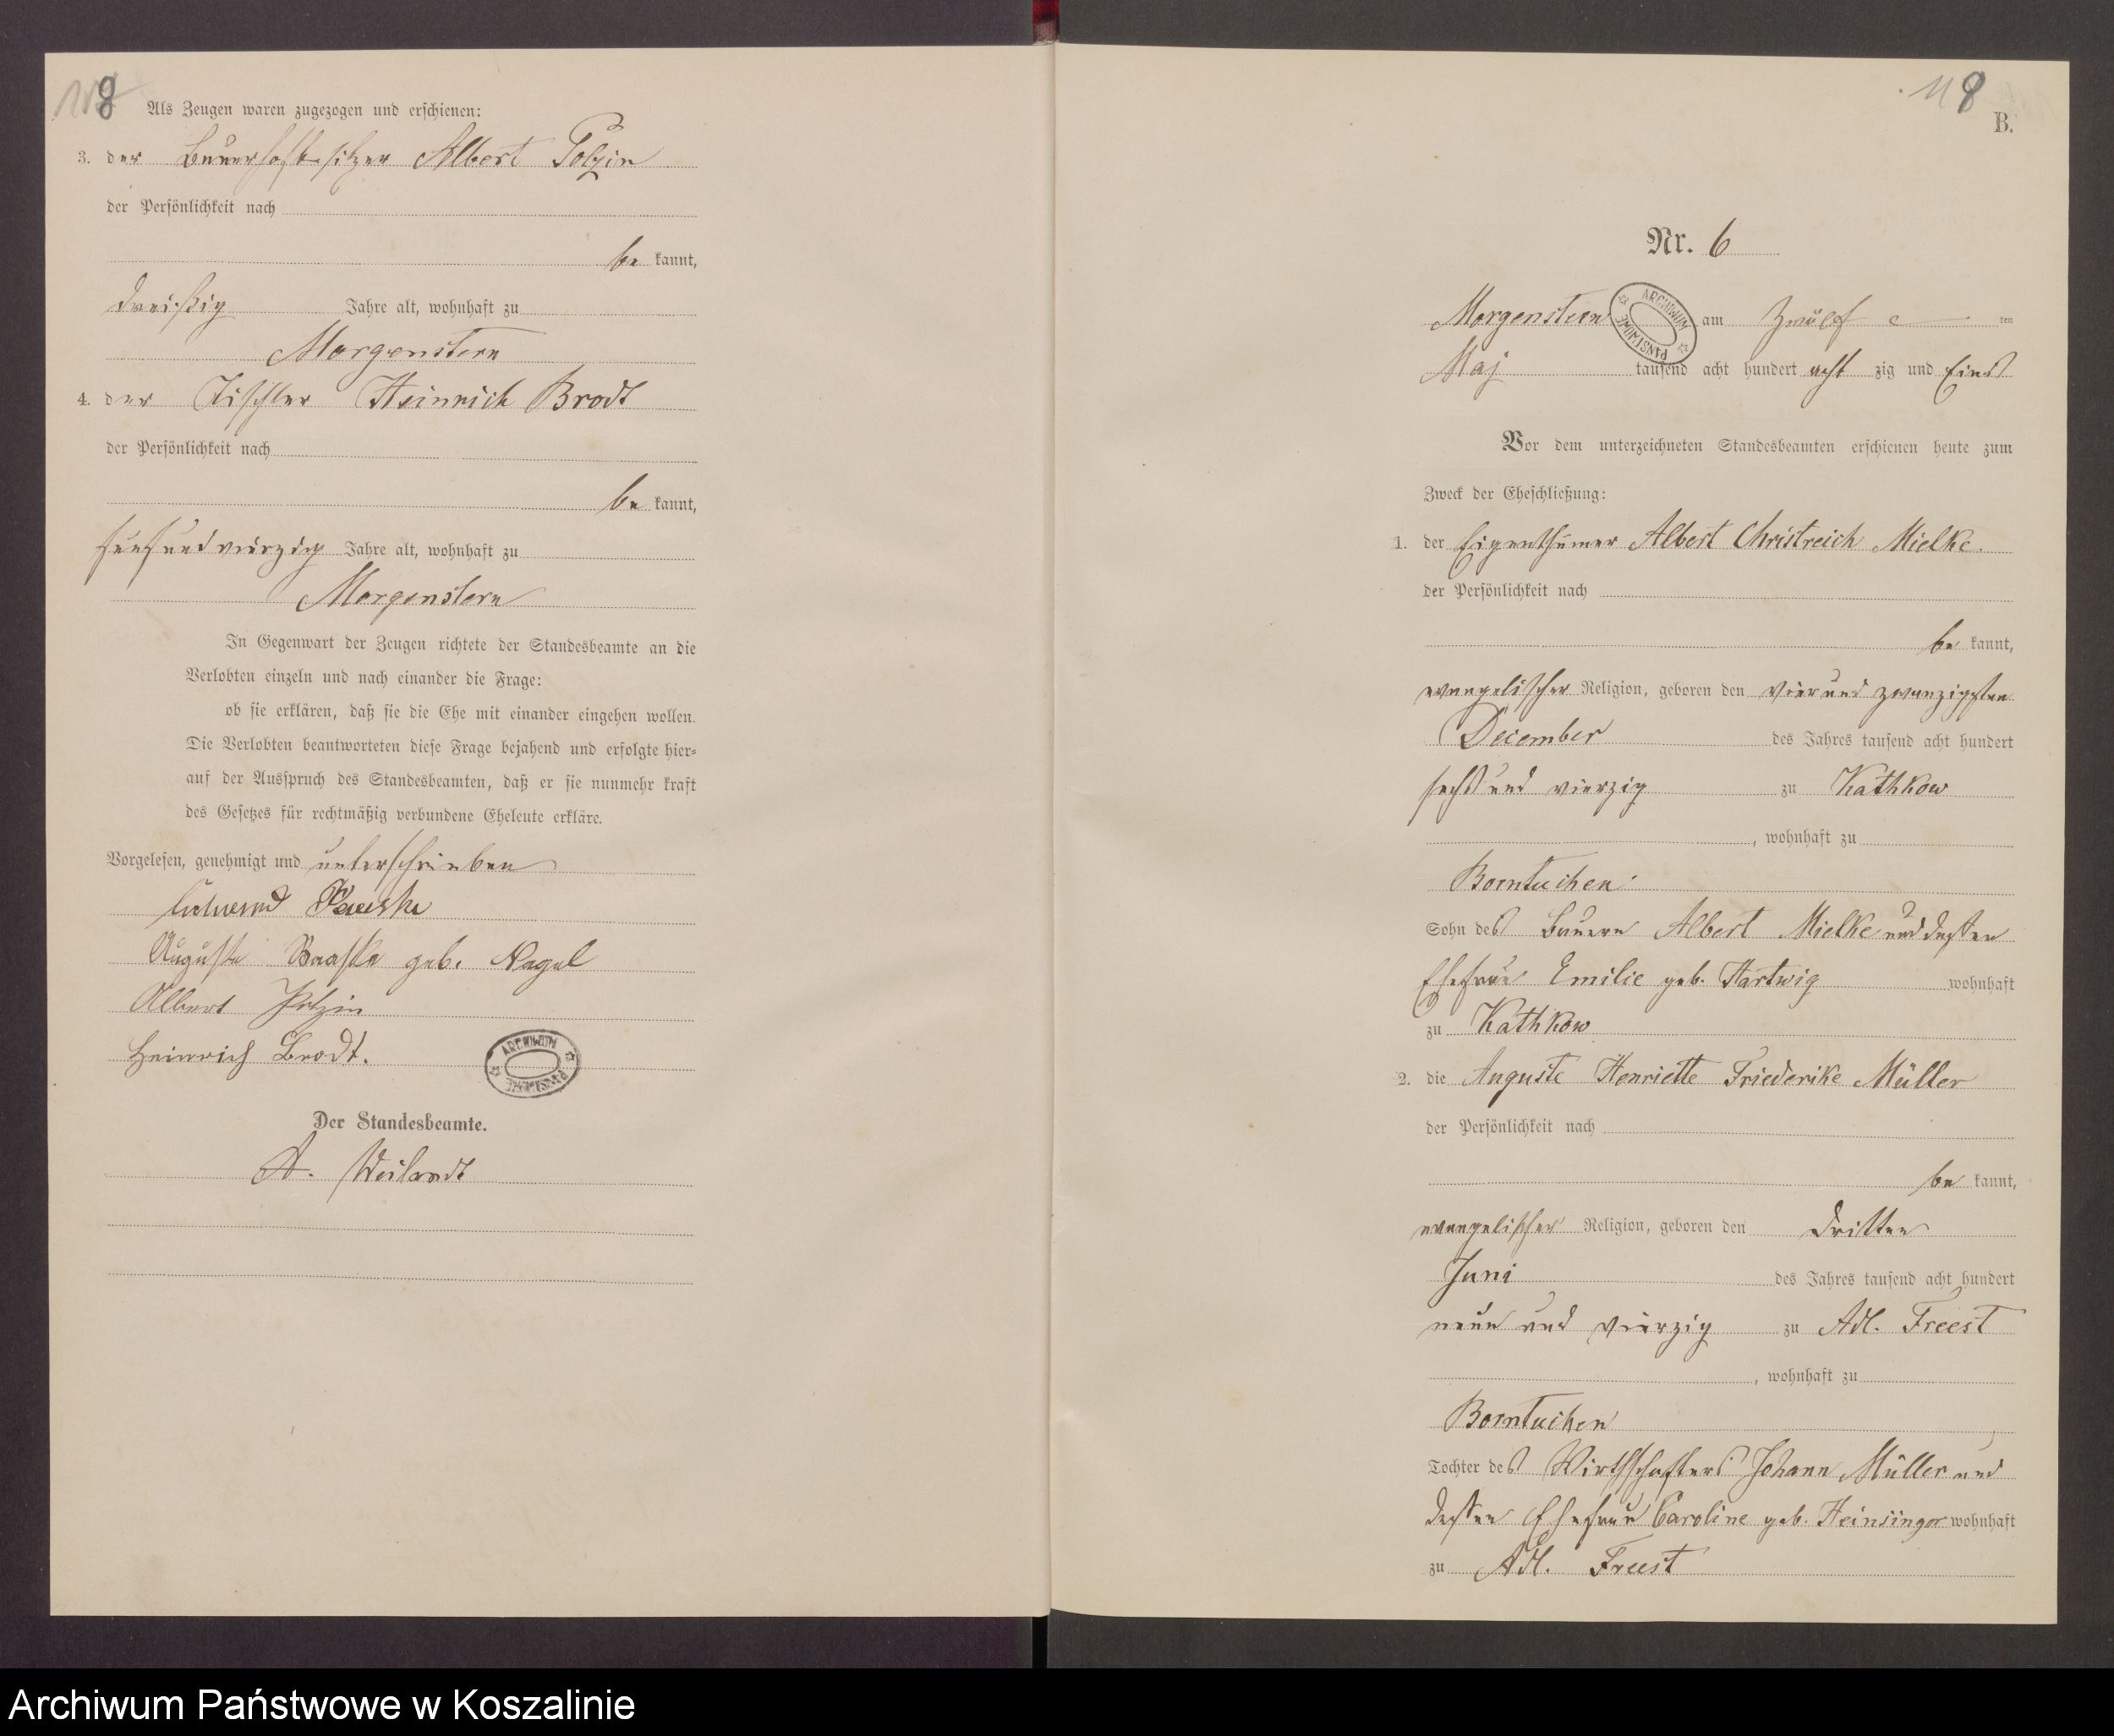 118
Als Zeugen waren zugezogen und erschienen:
3. der Bauerhofbesitzer Albert Polzin
der Persönlichkeit nach
be kannt,
dreißig Jahre alt, wohnhaft zu
Morgenstern
4. der Tischler Heinrich Brodt
der Persönlichkeit nach
be kannt,
fünfundvierzig Jahre alt, wohnhaft zu
Morgenstern
In Gegenwart der Zeugen richtete der Standesbeamte an die
Verlobten einzeln und nach einander die Frage:
ob sie erklären, daß sie die Ehe mit einander eingehen wollen.
Die Verlobten beantworteten diese Frage bejahend und erfolgte hier-
auf der Ausspruch des Standesbeamten, daß er sie nunmehr kraft
des Gesetzes für rechtmäßig verbundene Eheleute erkläre.
Vorgelesen, genehmigt und unterschrieben
Auguste Baaske geb. Nagel
Albert Polzin
Heinrich Brodt.
ARCHIWUM PAŃSTWOWE
Der Standesbeamte.
A. Weilandt
118
B.
Nr. 6
Morgenstern am Zwölf ten
ARCHIWUM PAŃSTWOWE
Maj tausend acht hundert acht zig und Eins
Vor dem unterzeichneten Standesbeamten erschienen heute zum
Zweck der Eheschließung:
1. der Eigenthümer Albert Christreich Mielke.
der Persönlichkeit nach
be kannt,
evangelischer Religion, geboren den vier und zwanzigsten
December des Jahres tausend acht hundert
sechs und vierzig zu Kathkow
, wohnhaft zu
Borntuchen
Sohn des Bauern Albert Mielke und dessen
Ehefrau Emilie geb. Hartwig wohnhaft
zu Kathkow
2. die Auguste Henriette Friederike Müller
der Persönlichkeit nach
be kannt,
evangelischer Religion, geboren den dritten
Juni des Jahres tausend acht hundert
neun und vierzig zu Adl. Freest
, wohnhaft zu
Borntuchen
Tochter des Wirthschafters Johann Müller und
dessen Ehefrau Caroline geb. Heinsinger wohnhaft
zu Adl. Freest
Archiwum Państwowe w Koszalinie